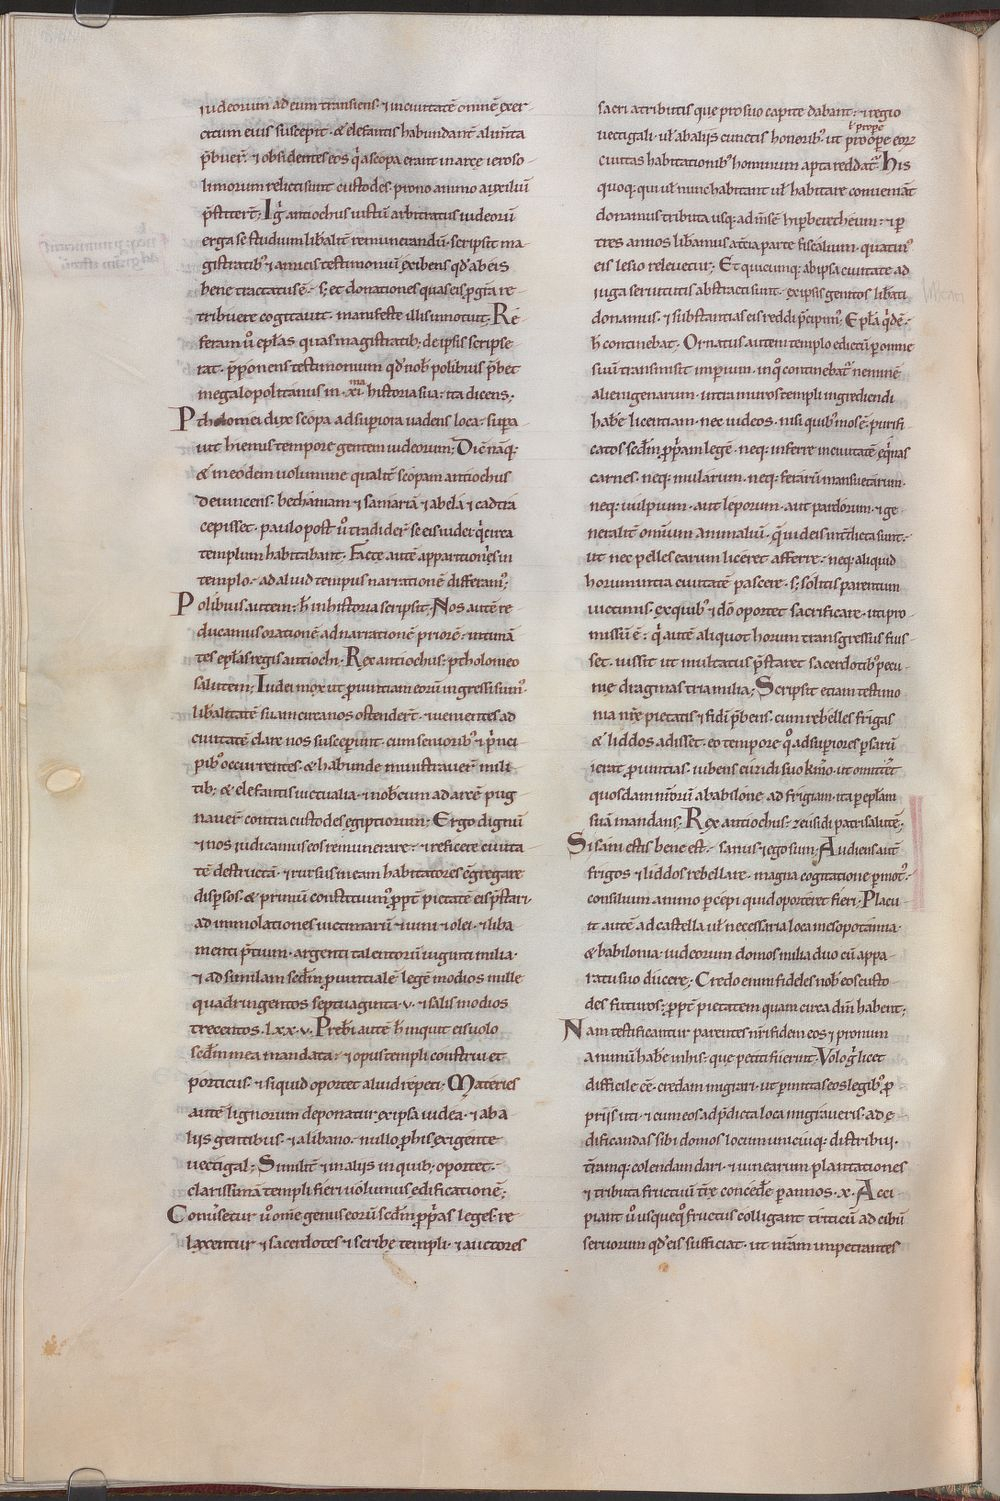 iudeorum ad eum transiens · ⁊ in ciuitatē omnē exer-
citum eius suscepit · & elefantis habundanť alimta
p̄buerť · ⁊ obsidentes eos q̇ a scopa erant in arce ieroso-
limorum relicti sunt custodes · prono animo auxiliū
p̄stiterť; Igť antiochus iustū arbitratus iudeorū
erga se studium libaliť remunerandū · scripsit ma-
gistratibꝰ ⁊ amicis testimoniū exibens qđ ab eis
bene tractatus ē · sꝫ et donationes quas eis ꝓ gr̄a re-
tribuere cogitauit · manifeste illis innotuit; Re-
feram ū ep̄las quas magistratibꝫ de ipsis scripse-
rat · p̄ponens testimonium qđ nob polibius p̄bet
megalopolitanus in · xi · ma historia sua · ita dicens;
Ptholomei dux scopa ad supiora uadens loca · supa-
uit hiemis tempore gentem iudeorum; Dic̄ namqꝫ
& in eodem uolumine qualiť scopam antiochus
deuincens · bethaniam ⁊ samariā ⁊ abela ⁊ cadara
cepisset · paulo post ū tradiderť se ei iudei q̇ circa
templum habitabant; Facte autē apparitionis in
templo · ad aliud tempus narrationē differamꝰ;
Polibius autem · h̄ in historia scripsit; Nos autē re-
ducamus orationē ad narrationē priorē · intimā-
tes ep̄las regis antiochi; Rex antiochus · ptholomeo
salutem; Iudei mox ut ꝓuintiam eorū ingressi sumꝰ ·
libalitatē suam circa nos ostenderť · ⁊ uenientes ad
ciuitatē clare nos susceperunt · cum seniorib ⁊ p̄nci-
pibꝰ occurrentes · & habunde ministrauerť mili-
tibꝫ & elefantis uictualia · ⁊ nobcum ad arcē pug-
nauerť contra custodes egiptiorum; Ergo dignū
⁊ nos iudicamus eos remunerare · ⁊ reficere ciuita-
tē destructā · ⁊ rursus in eam habitatores cōgregare
disꝑsos · & primū constituimꝰ ꝓpť pietatē eis p̄stari
ad immolationes uictimarū ⁊ uini ⁊ olei · ⁊ liba-
menti p̄tium · argenti talentorū uiginti milia ·
⁊ ad similam secđm ꝓuintialē legē modios mille
quadringentos septuaginta · v · ⁊ salis modios
trecentos · lxx · v · Preberi autē h̄ inquit eis uolo
secđm mea mandata · ⁊ opus templi construi et
porticus · ⁊ si quid oportet aliud repeti; Materies
autē lignorum deponatur ex ipsa iudea · ⁊ ab a-
liis gentibus · ⁊ a libano · nullo ꝓ his exigente
uectigal; Similiť ⁊ in aliis in quibꝫ oportet ·
clarissimā templi fieri uolumus edificationē;
Conūsetur ū om̄e genus eorū secđm ꝓp̄as leges · re-
laxentur ⁊ sacerdotes ⁊ scribe templi · ⁊ auctores
sacri a tributis que pro suo capite dabant · ⁊ regio
uectigali · uł ab aliis cunctis honoribꝰ · ut pro opere eorꝝ
ł prope
ciuitas habitationibꝰ hominum apta reddatť; His
quoqꝫ qui uł nunc habitant uł habitare conueniāt
donamus tributa usqꝫ ad m̄sē hiperberetheum · ⁊ ꝑ
tres annos libamus a tertia parte fiscalium · quatinꝰ
eis lesio releuetur; Et quicumqꝫ ab ipsa ciuitate ad
iuga seruitutis abstracti sunt · ex ipsis genitos libari
donamus · ⁊ substantias eis reddi p̄cipimꝰ; Ep̄la q̄dē ·
h̄ continebat; Ornatus autem templo edictū ꝑ omne
suū transmisit imperium · in qͦ continebatť neminē
alienigenarum · intra muros templi ingrediendi
habē licentiam · nec iudeos · nisi quibꝰ mos ē · purifi-
catos secđm ꝓp̄am legē · neqꝫ inferre in ciuitatē eq̇nas
carnes · neqꝫ mularum · neqꝫ ferarū mansuetarum ·
neqꝫ uulpium · aut leporum · aut pardorum · ⁊ ge-
neraliť omnium animaliū · q̄ iudeis interdicta sunt ·
ut nec pelles earum liceret afferre · neqꝫ aliquid
horum intra ciuitatē pascere · sꝫ solitis parentum
uictimis · ex quibꝰ ⁊ dō oportet sacrificare · ita pro-
missū ē · q̇ autē aliquot horum transgressus fuis-
set · iussit ut multatus p̄staret sacerdotibꝰ pecu-
nie dragmas tria milia; Scripsit etiam testimo-
nia nr̄e pietatis ⁊ fidi p̄bens · cum rebelles frigas
& liddos adisset · eo tempore qͦ ad superiores persarū
ierat ꝓuintias · iubens ceuxidi suo kmō · ut omitt̄et
quosdam nr̄orū a babilone ad frigiam · ita ꝑ ep̄lam
suā mandans; Rex antiochus · zeusidi patri salutē;
Si sani estis bene est · sanus ⁊ ego sum; Audiens autē
frigos ⁊ liddos rebellare · magna cogitatione ꝑmotꝰ ·
consilium animo percepi quid oporteret fieri; Placu-
it autē ad castella uł necessaria loca mesopotamia ·
& babilonia · iudeorum domos milia duo cū appa-
ratu suo ducere; Credo enim fideles nob eos custo-
des futuros; ꝓpť pietatem quam circa dm̄ habent;
Nam testificantur parentes nr̄i fidem eos ⁊ pronum
animū habē in his · que petiti fuerint; Volo gͦ licet
difficile cē · eređam migrari · ut ꝑmittas eos legibꝰ ꝓ-
priis uti · ⁊ cum eos ad p̄dicta loca migraueris · ad e-
dificandas sibi domos locum unicuiqꝫ distribui ·
trāmqꝫ colendam dari · ⁊ uinearum plantationes
⁊ tributa fructuū terre concede ꝑ annos · x · Acci-
piant ū usquequo fructus colligant triticū ad cibū
seruorum qđ eis sufficiat · ut nr̄am impetrantes